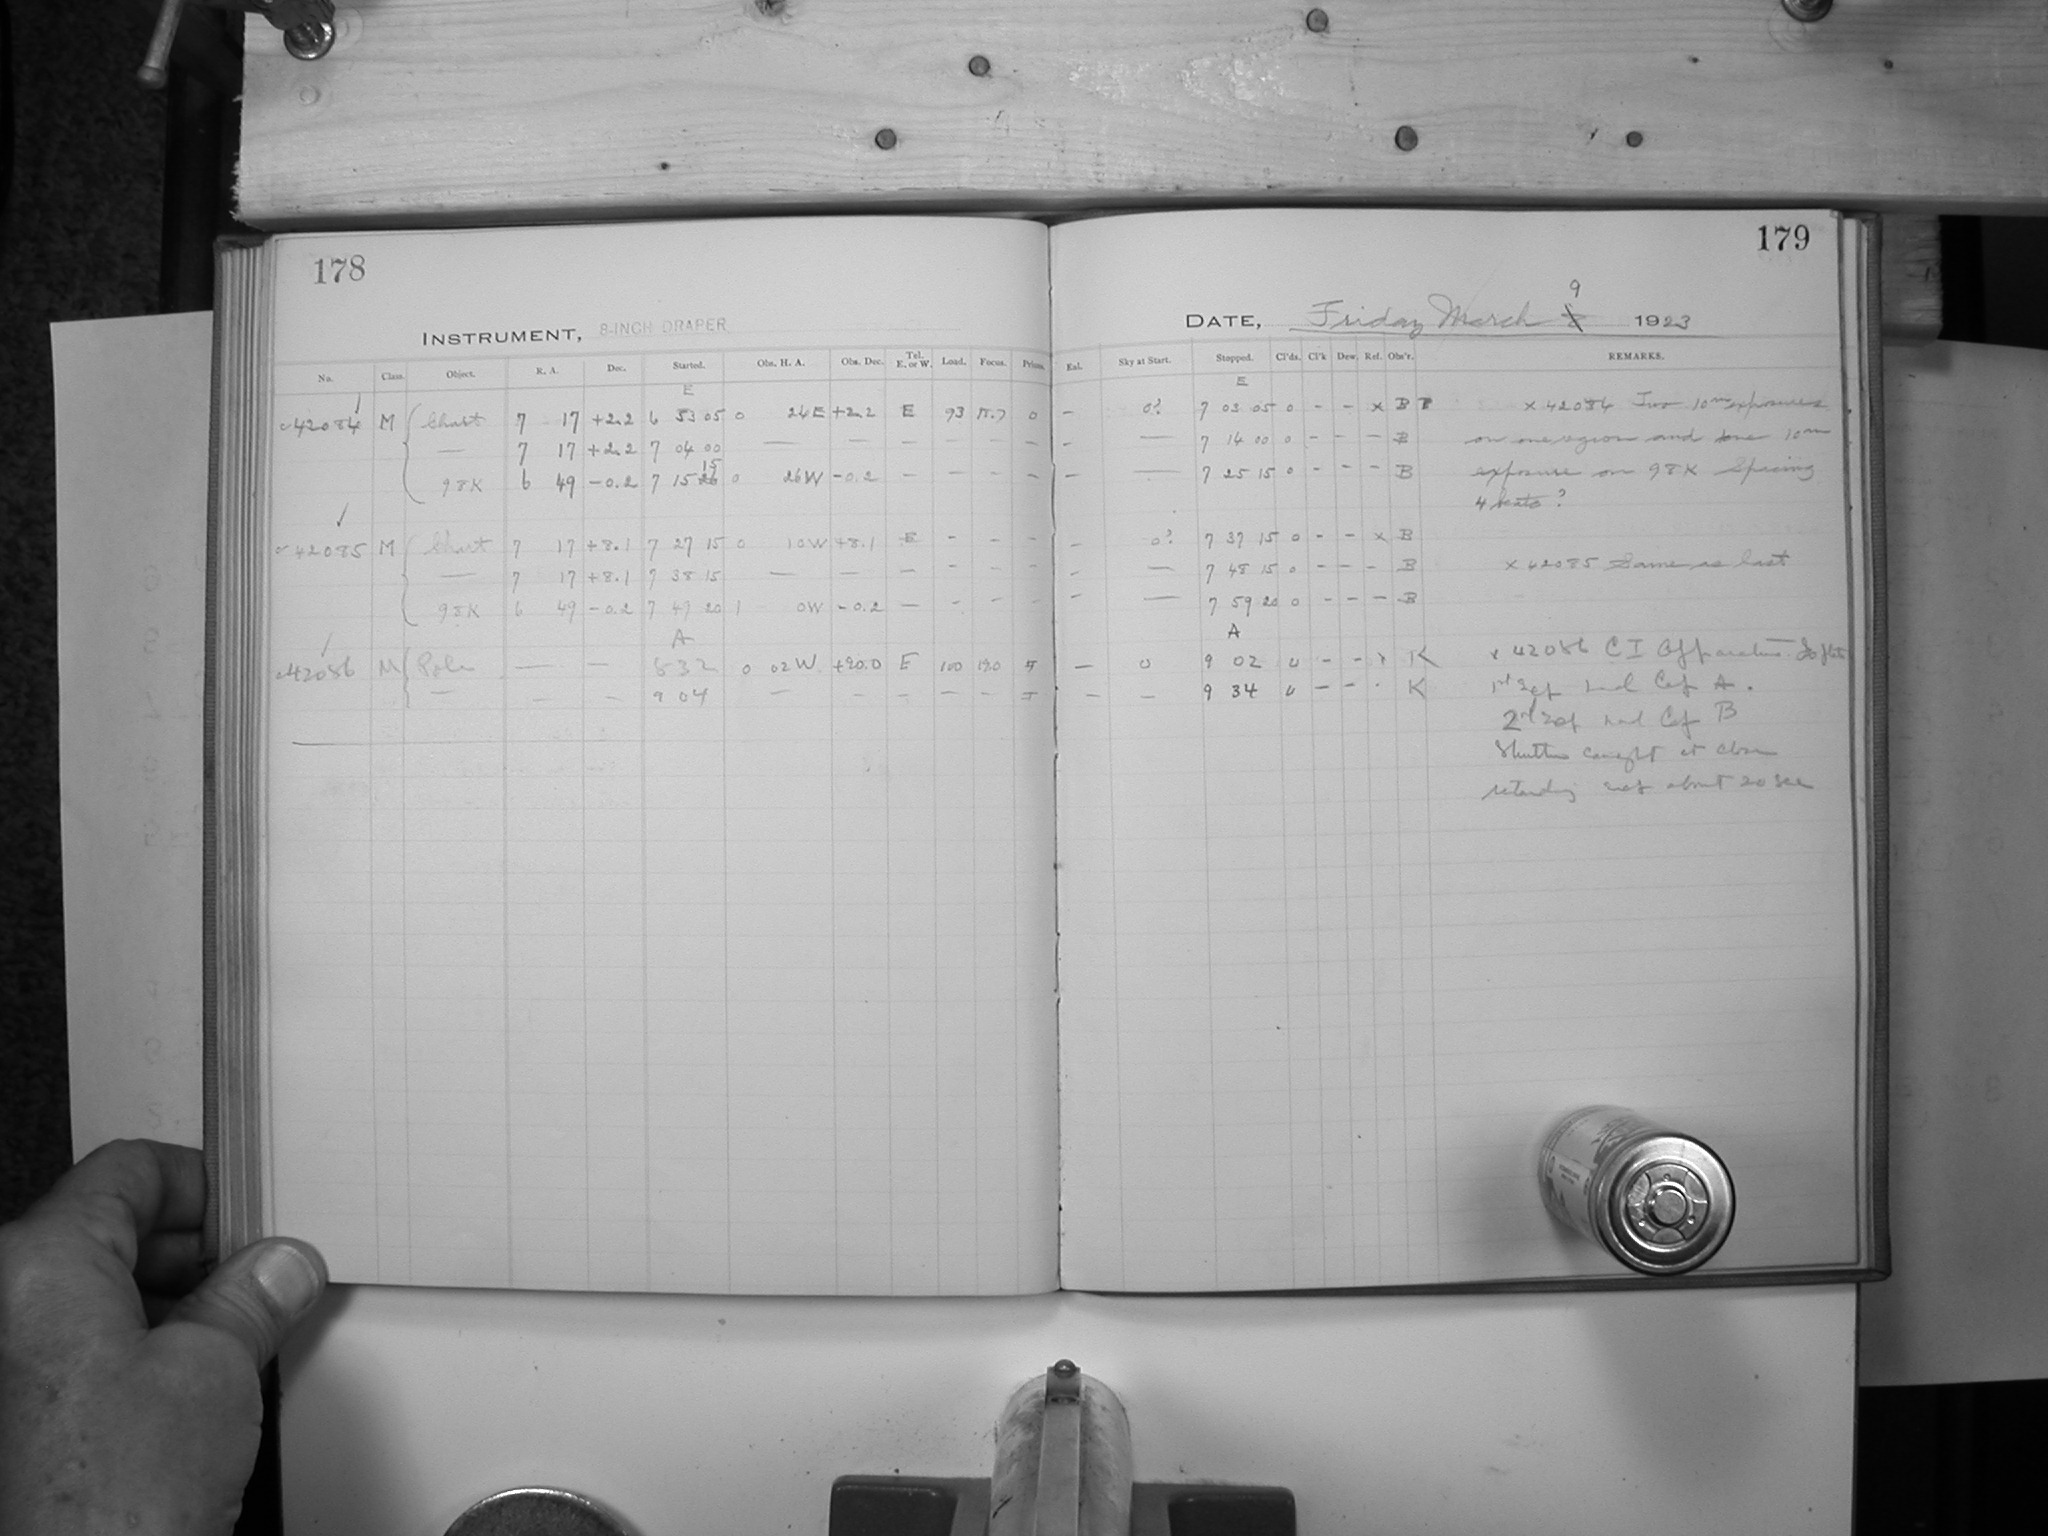 178
INSTRUMENT, 8-INCH DRAPER
No. Class. Object. R. A. Dec. Started. Obs. H. A. Obs. Dec. Tel. E. or W. Load. Focus. Prism.
E
42084 M Chart 7 17 +2.2 6 53 05 0 26E +2.2 E 93 0 -
— 7 17 +2.2 7 04 00 — — — - - -
15
98K 6 49 -0.2 7 15 0 26W -0.2 — - - -
42085 M Chart 7 17 +8.1 7 27 15 0 10W +8.1 E - - -
— 7 17 +8.1 7 38 15 — — — - - -
98K 6 49 -0.2 7 49 20 1 0W -0.2 — - - -
A
42086 M Pole — — 8 32 0 02W +90.0 E 100 190
— — — 9 04 — — — - -
179
9
DATE, Friday March 8 1923
Exl. Sky at Start. Stopped. Cl'ds. Cl'k Dew. Ref. Obs'r. REMARKS.
E
- 0? 7 03 05 0 - - x B x 42084 Two 10m exposures
- — 7 14 00 0 - - - B on one region and one 10m
- — 7 25 15 0 - - - B exposure on 98K Spacing
4 beats?
- 0? 7 37 15 0 - - x B
- — 7 48 15 0 - - - B x 42085 Same as last
- — 7 59 20 0 - - - B
A
— 0 9 02 0 - - x K x 42086 C I Apparatus
— — 9 34 0 - - · K 1st had Cap A.
2nd had Cap B
Shutter caught at close
about 20 sec